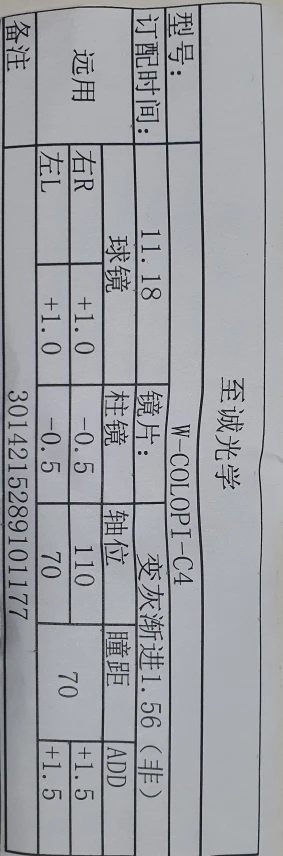 至诚光学
型号: W-COLOPI-C4
订配时间: 11.18 镜片: 变灰渐进1.56(非)
远用 球镜 柱镜 轴位 瞳距 ADD
右R +1.0 -0.5 110 70 +1.5
左L +1.0 -0.5 70 +1.5
备注 3014215289101177